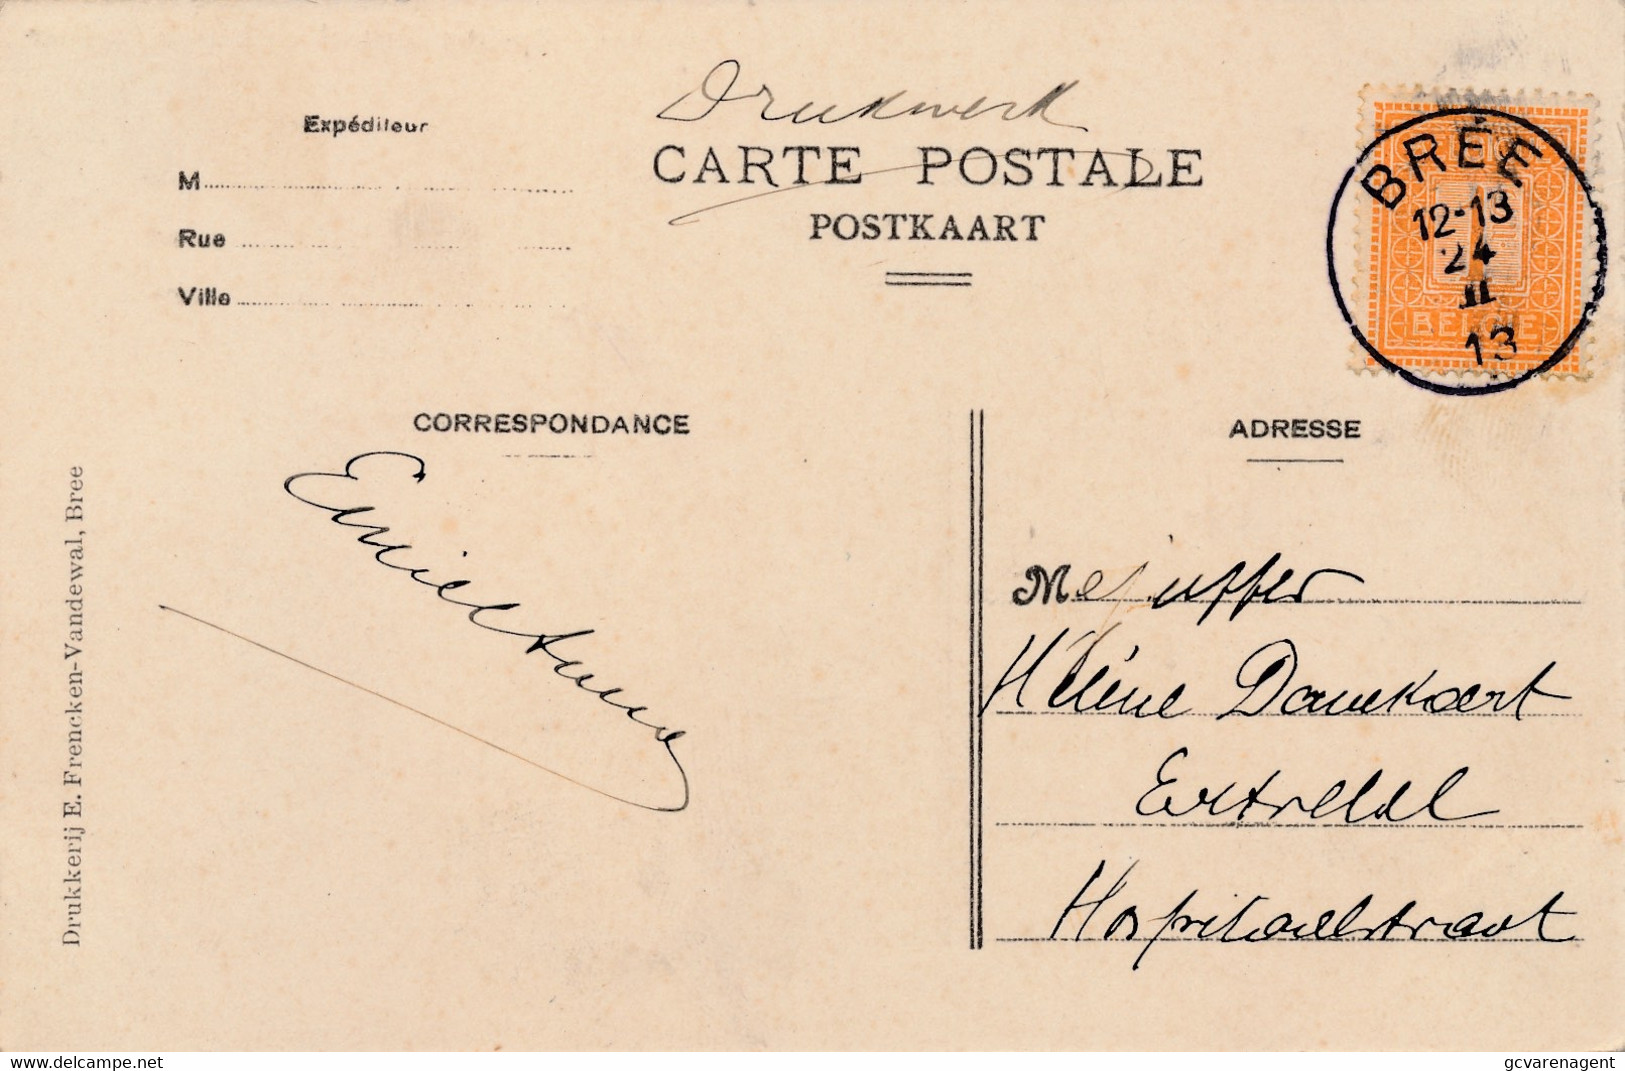 Drukwerk
CARTE POSTALE
POSTKAART
Expéditeur
M
Rue
Ville
BREE
12-13
24
II
13
BELGIE
CORRESPONDANCE
ADRESSE
Emiel
Mejuffer
Hélène Danckaert
Hospitaalstraat
Drukkerij E. Frencken-Vandewal, Bree
delcampe.net
gcvarenagent